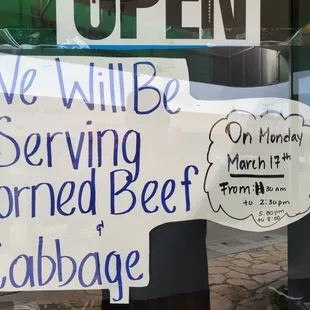 OPEN
We Will Be
Serving
Corned Beef
&
Cabbage
On Monday
March 17th
From 30 am
to 2:30 pm
5:00 pm
to 8:00